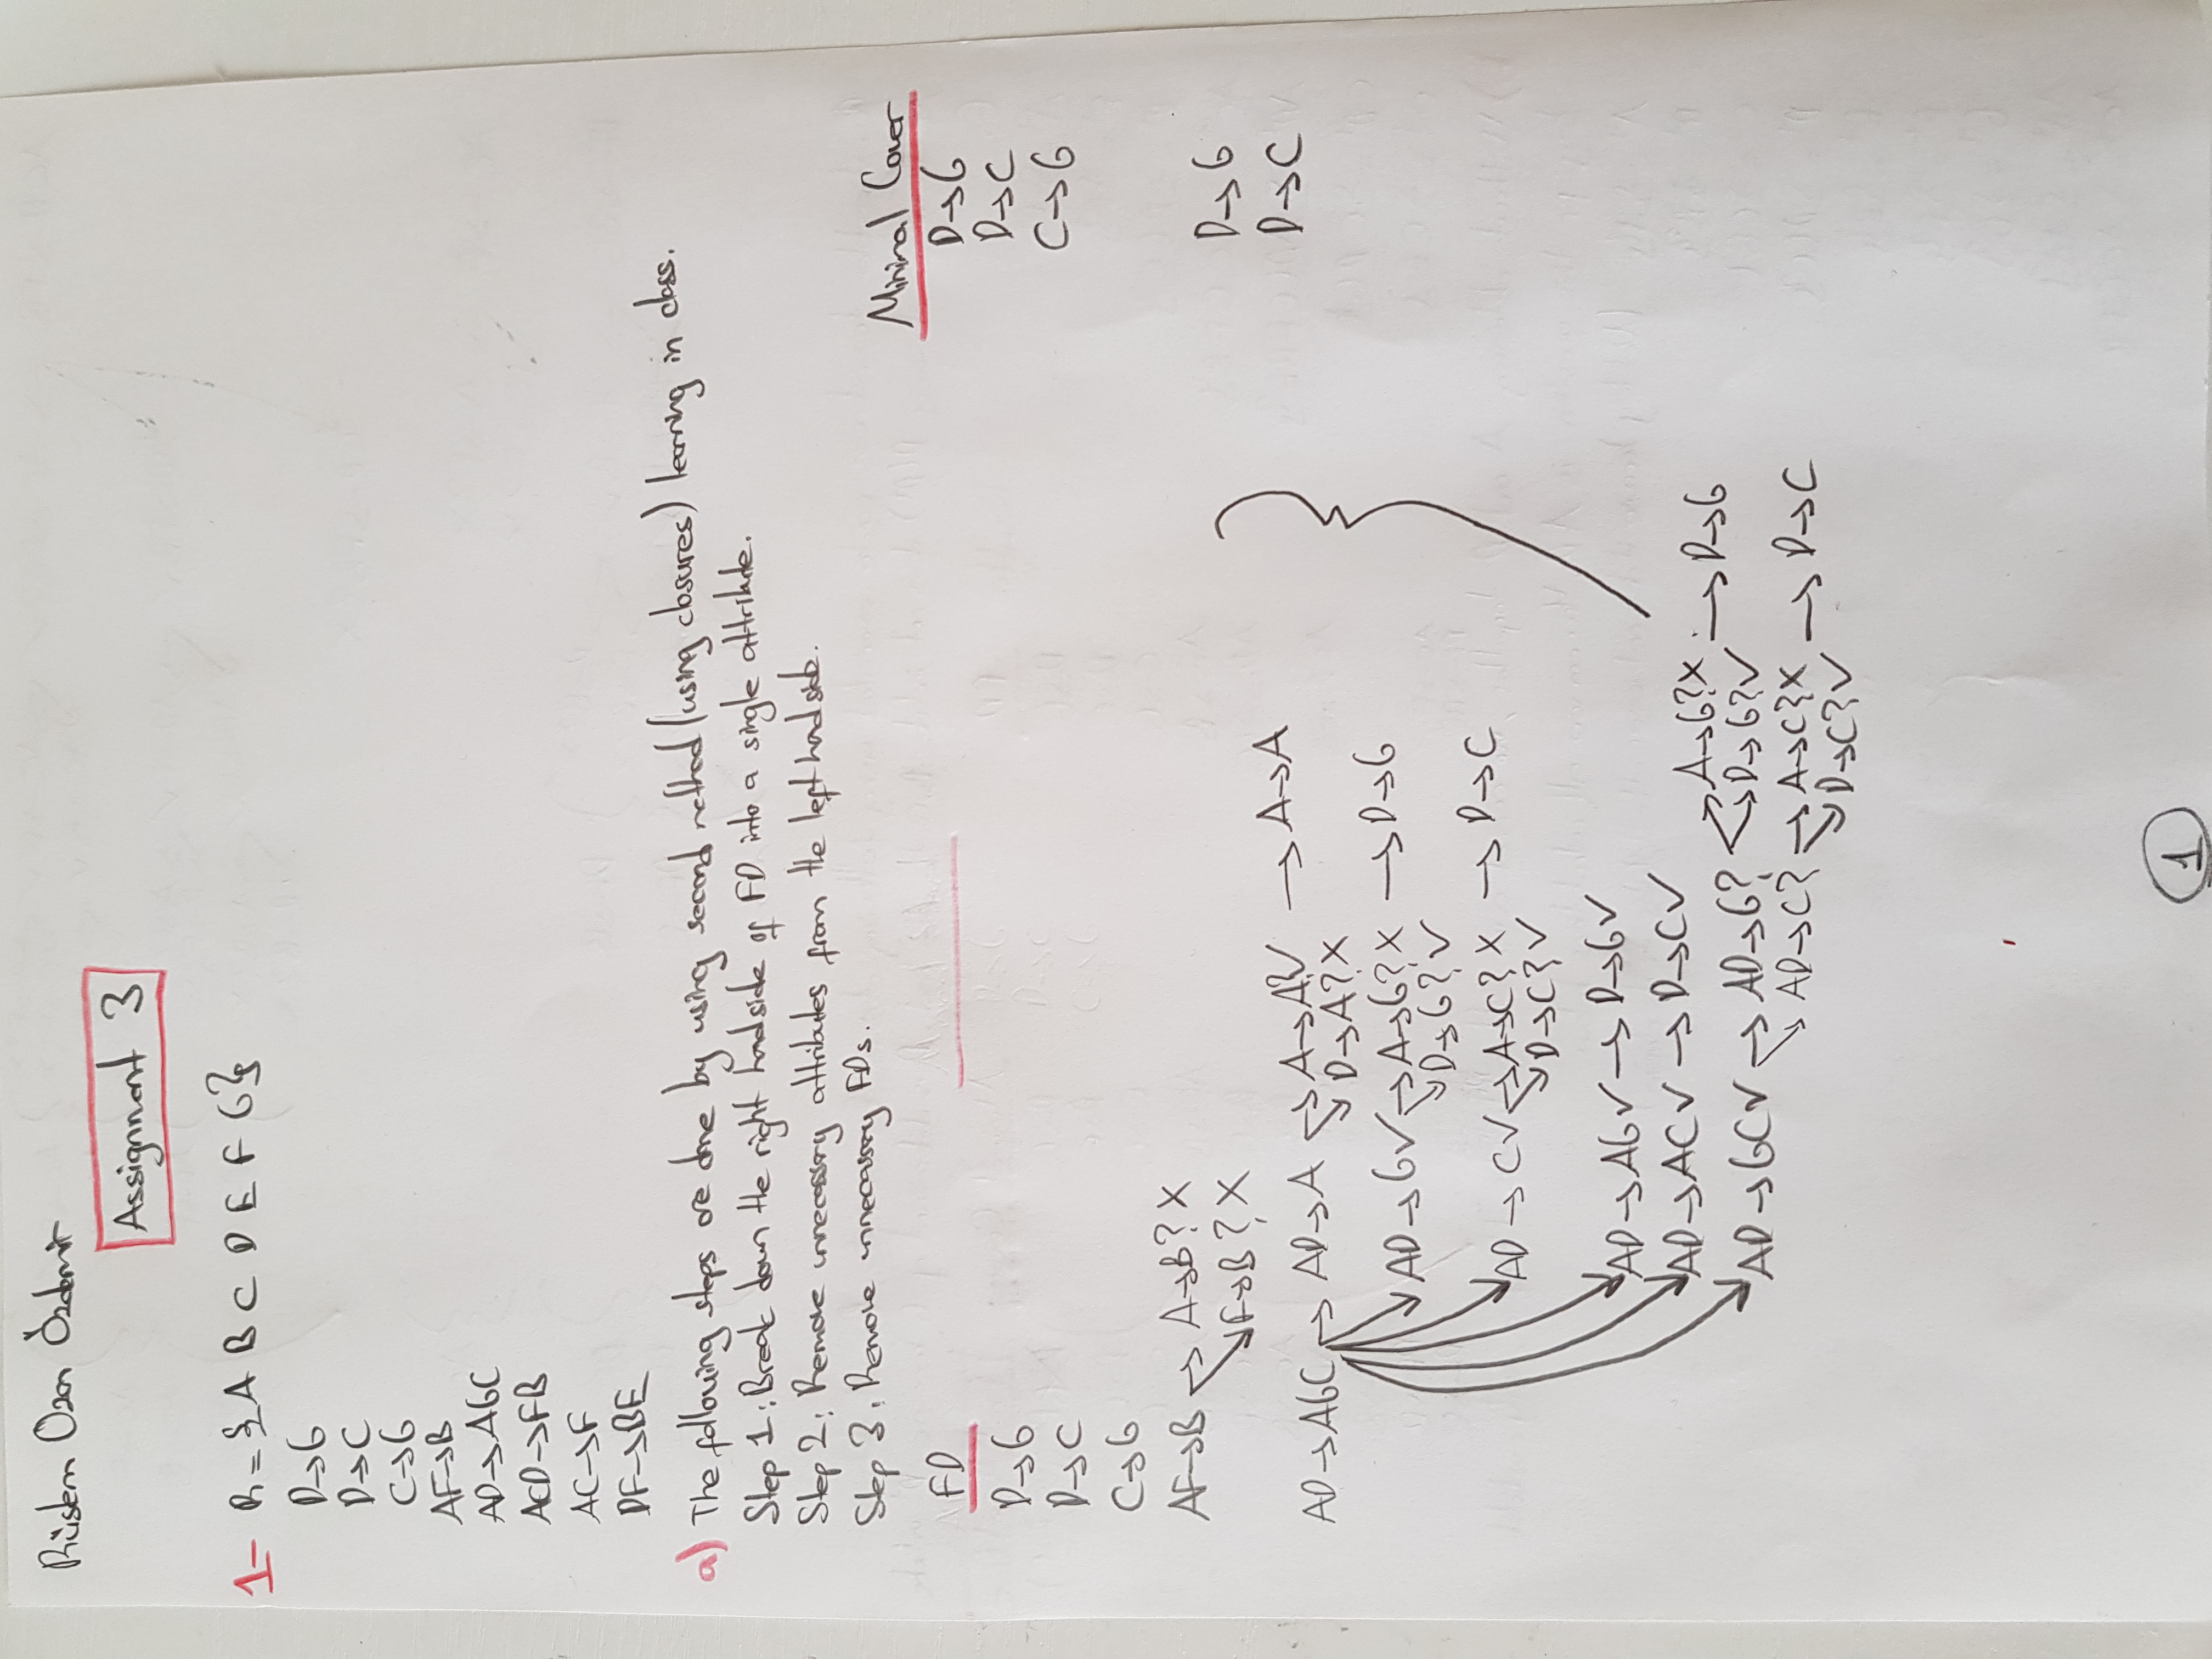 Rüstem Ozan Özdemir
Assignment 3
1- R = {A B C D E F G}
D→G
D→C
C→G
AF→B
AD→AGC
ACD→FB
AC→F
DF→BE
a) The following steps are done by using second method (using closures) learning in class.
Step 1: Break down the right handside of FD into a single attribute.
Step 2: Remove unnecessary attributes from the left handside.
Step 3: Remove unnecassey FDs.
FD
Minimal Cover
D→G
D→G
D→C
D→C
C→G
C→G
AF→B → A→B? X
→ F→B? X
D→G
D→C
AD→AGC → AD→A → A→A? ✓ → A→A
→ D→A? X
AD→G ✓ → A→G? X → D→G
→ D→G? ✓
AD→C ✓ → A→C? X → D→C
→ D→C? ✓
AD→AG ✓ → D→G ✓
AD→AC ✓ → D→C ✓
AD→GC ✓ → AD→G? → A→G? X → D→G
→ D→G? ✓
→ AD→C? → A→C? X → D→C
→ D→C? ✓
1